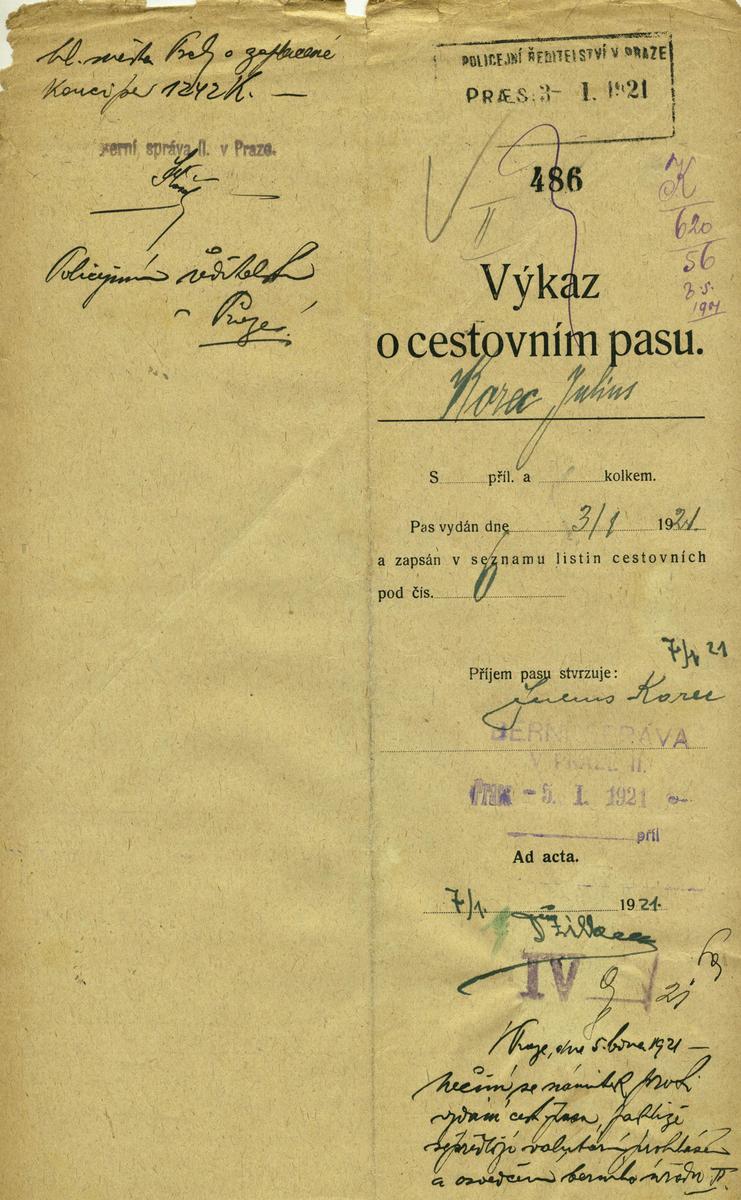 hl. města Prahy o zaplacené
1242 K. —
berní správa II. v Praze.
Policejnímu ředitelství
v Praze.
POLICEJNÍ ŘEDITELSTVÍ V PRAZE
PRÆS. 3- I. 1921
486
II
K
620
56
3.5.
1921
Výkaz
o cestovním pasu.
Korec Julius
S příl. a kolkem.
Pas vydán dne 3/1 1921.
a zapsán v seznamu listin cestovních
pod čís. 6
7/1 21
Příjem pasu stvrzuje:
Julius Korec
BERNÍ SPRÁVA
V PRAZE II.
Praha - 5. I. 1921
příl
Ad acta.
7/1. 1921.
IV
21
V Praze, dne 5. ledna 1921 —
Nečiní se námitek proti
vydání cest. pasu,
předloží valutární prohlášení
a osvědčení berního úřadu II.